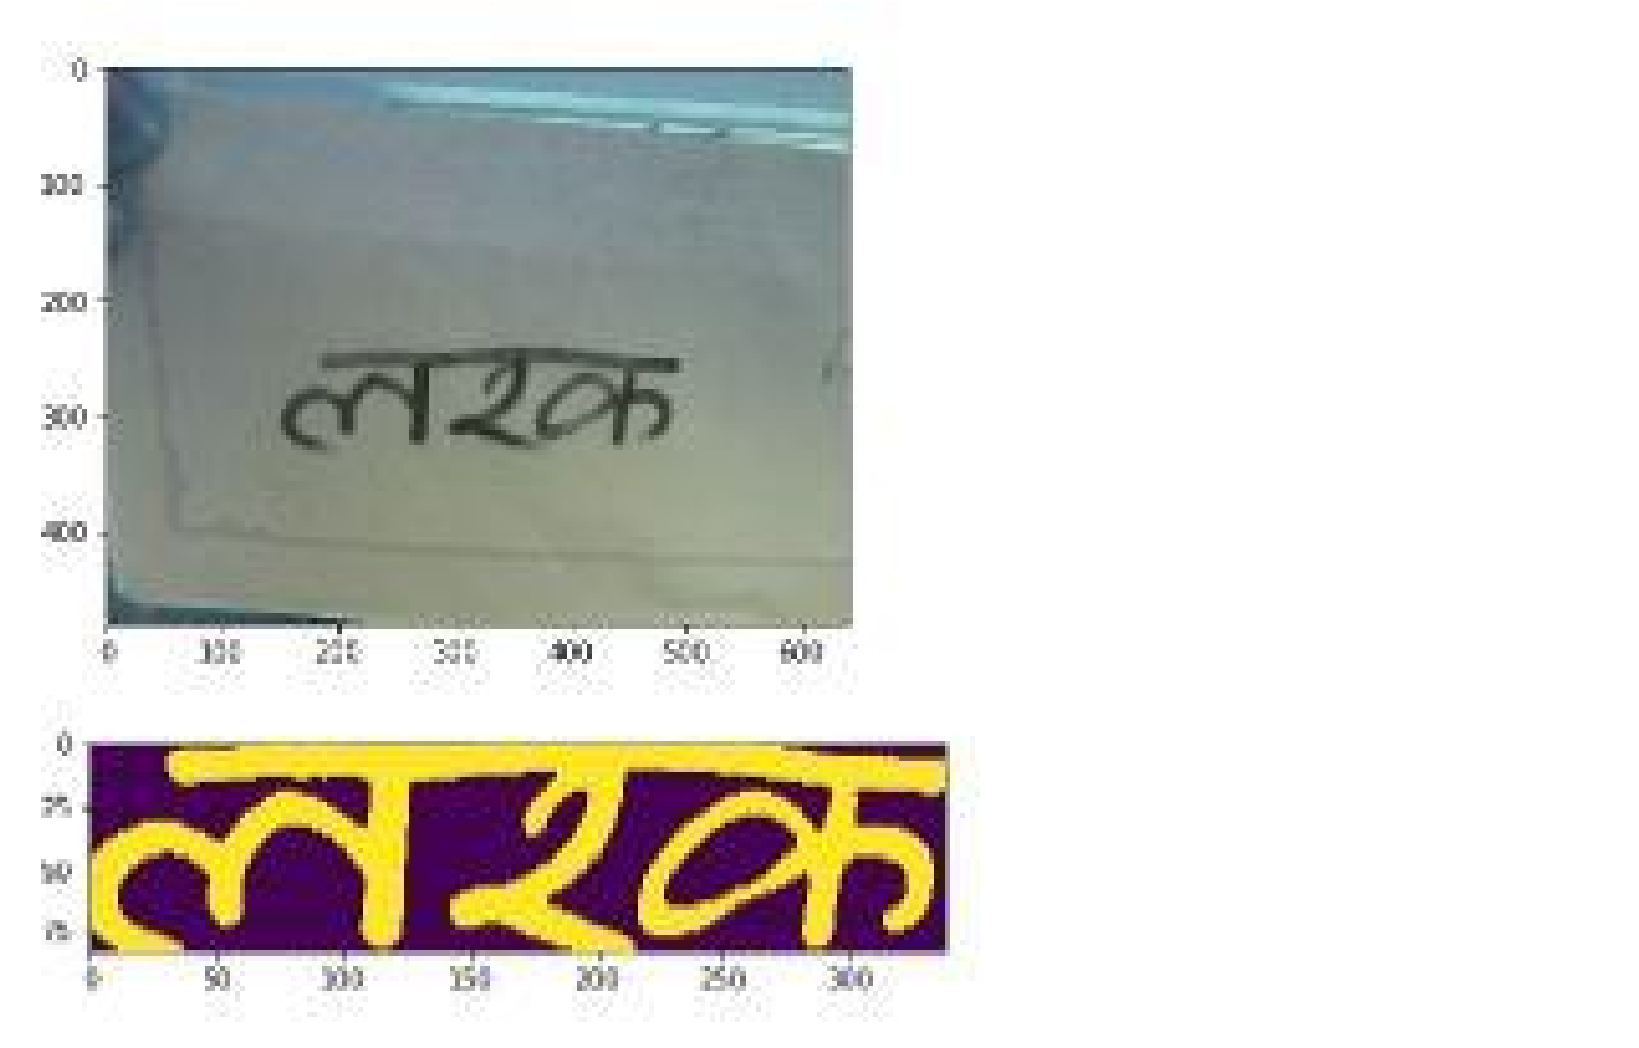 0
100
200
लरक
300
400
0 100 200 300 400 500 600
0
25
लरक
50
75
0 50 100 150 200 250 300